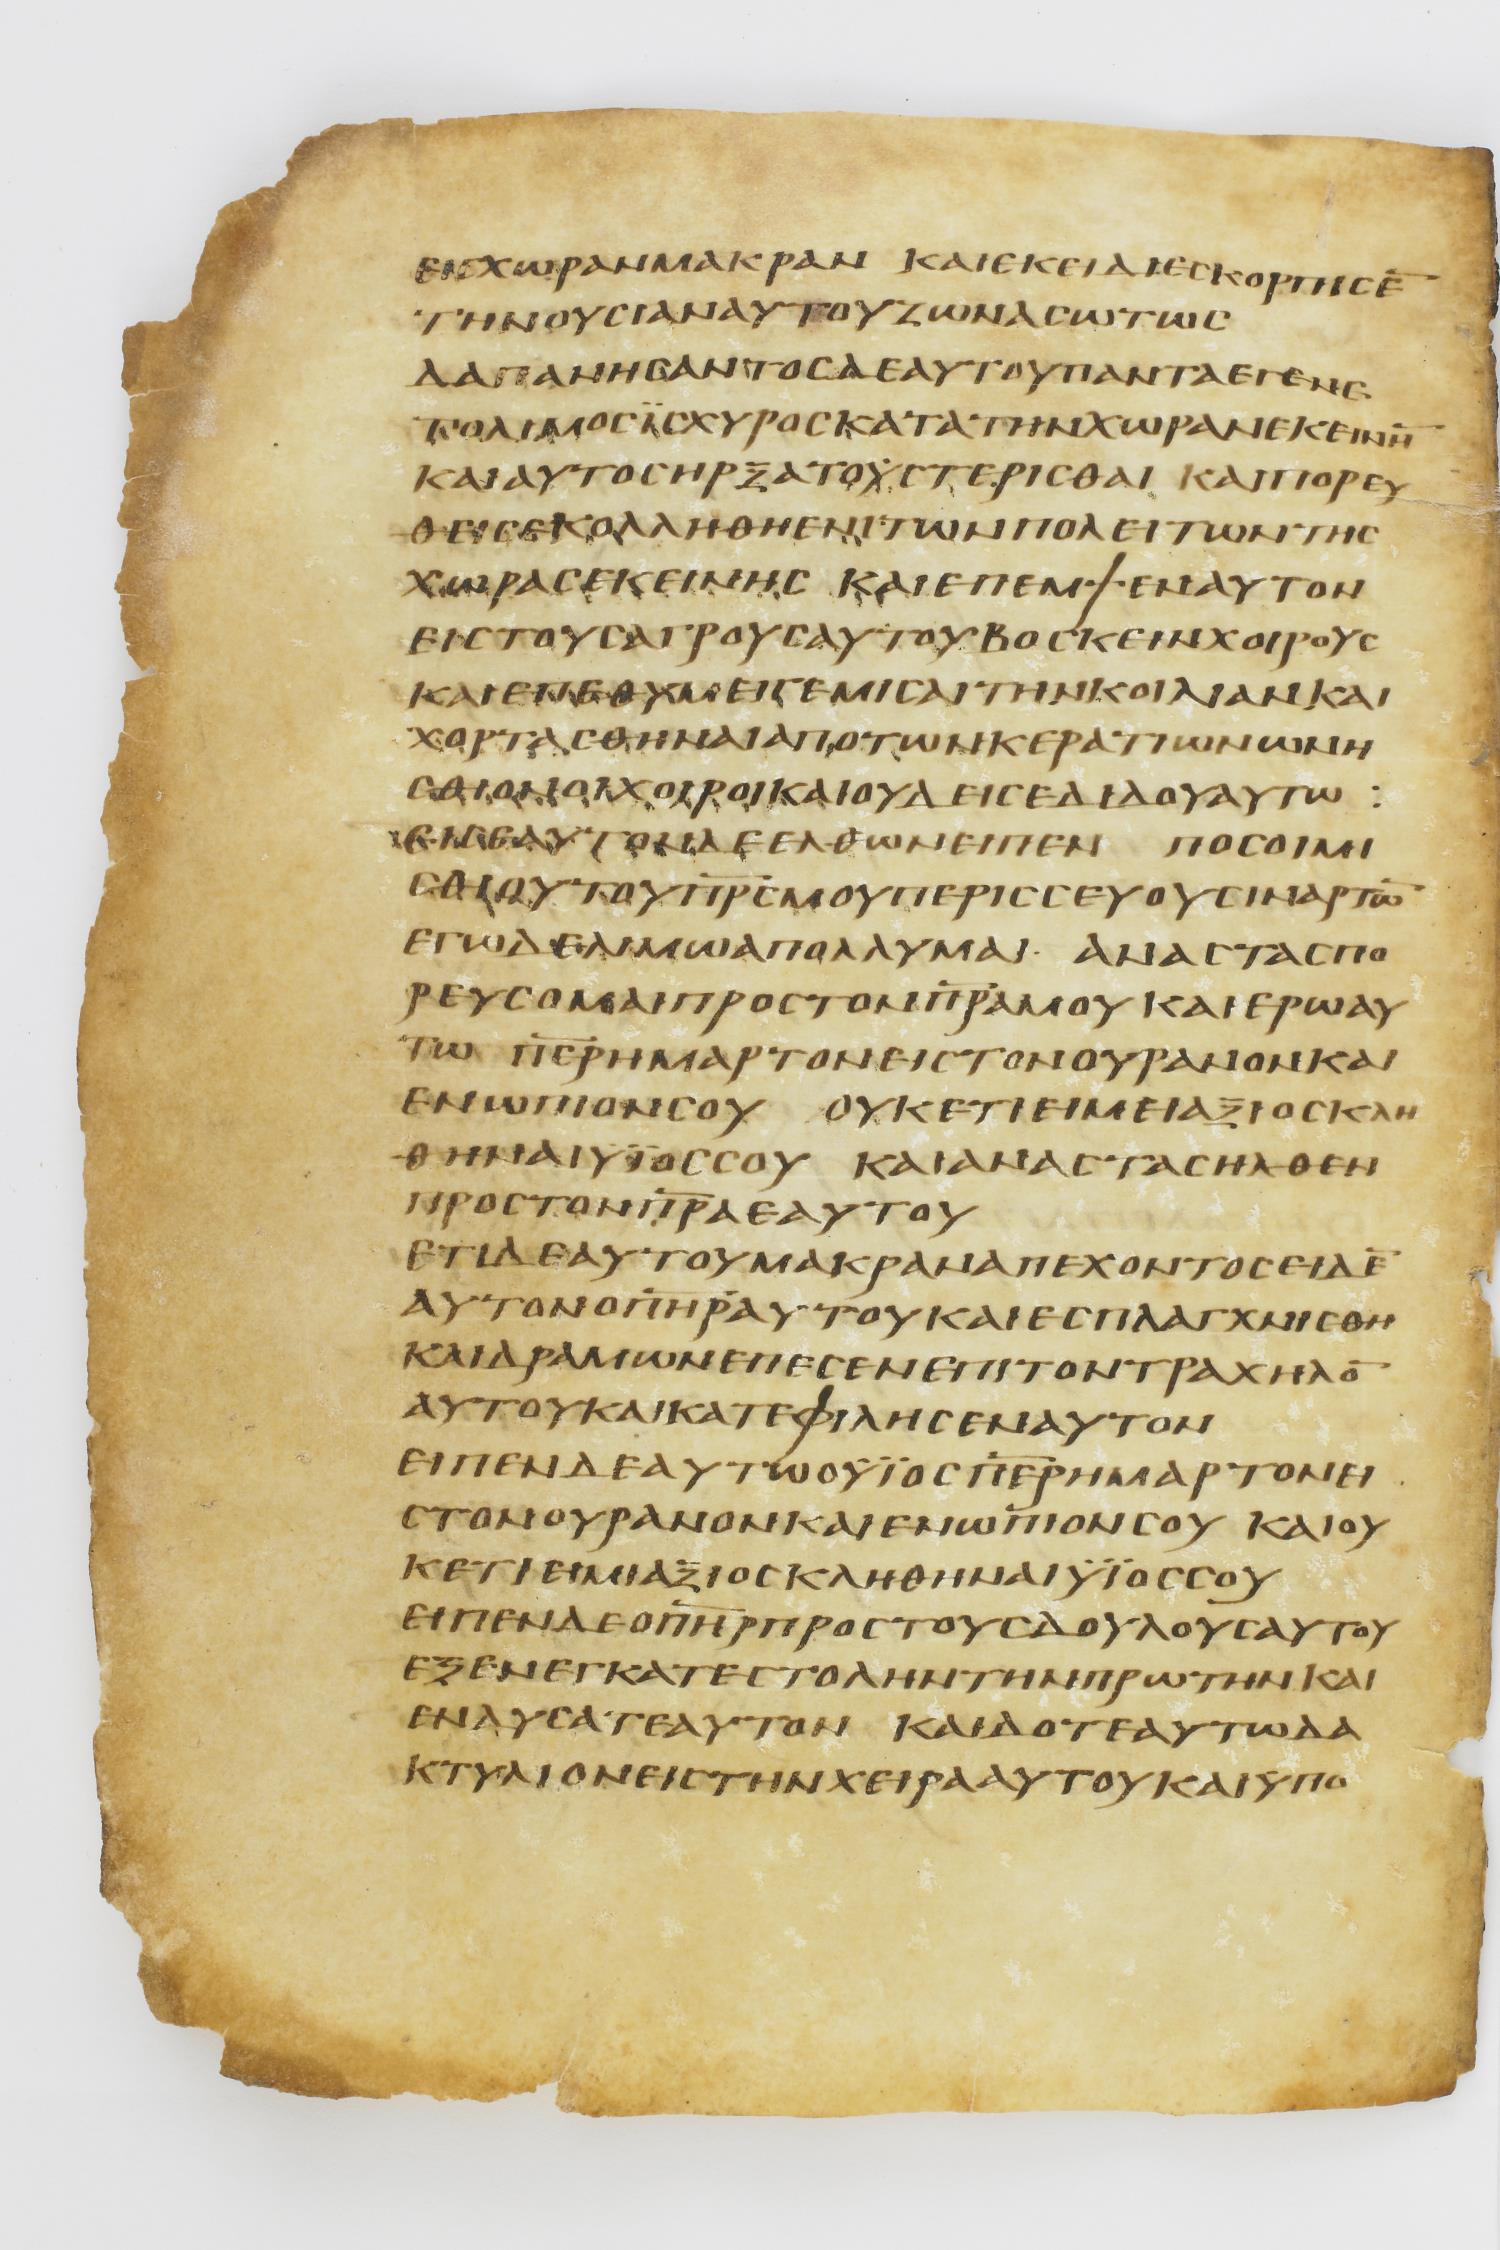 ειϲχωρανμακραν καιεκειδιεϲκορπιϲε̅
τηνουϲιαναυτουζωναϲωτωϲ
δαπανηϲαντοϲδεαυτουπανταεγενε
τολιμοϲϊϲχυροϲκατατηνχωρανεκεινη̅
καιαυτοϲηρξατοϋϲτεριϲθαι καιπορευ
θειϲεκολληθηενιτωνπολειτωντηϲ
χωραϲεκεινηϲ καιεπεμψεναυτον
ειϲτουϲαγρουϲαυτουβοϲκεινχοιρουϲ
καιεπεθυμειγεμιϲαιτηνκοιλιανκαι
χορταϲθηναιαποτωνκερατιωνωνη
ϲθιονοιχοιροικαιουδειϲεδιδουαυτω :
ειϲεαυτονδεελθωνειπεν ποϲοιμι
ϲθιουτουπ̅ρ̅ϲ̅μουπεριϲϲευουϲιναρτω̅
εγωδελιμωαπολλυμαι· αναϲταϲπο
ρευϲομαιπροϲτονπ̅ρ̅α̅μουκαιερωαυ
τω π̅ε̅ρ̅ημαρτονειϲτονουρανονκαι
ενωπιονϲου ουκετιειμειαξιοϲκλη
θηναιϋϊοϲϲου καιαναϲταϲηλθεν
προϲτονπ̅ρ̅α̅εαυτου
ετιδεαυτουμακραναπεχοντοϲειδε̅
αυτονοπ̅η̅ρ̅αυτουκαιεϲπλαγχνιϲθη
καιδραμωνεπεϲενεπιτοντραχηλο̅
αυτουκαικατεφιληϲεναυτον
ειπενδεαυτωοϋϊοϲπ̅ε̅ρ̅ημαρτονει
ϲτονουρανονκαιενωπιονϲου καιου
κετιειμιαξιοϲκληθηναιϋϊοϲϲου
ειπενδεοπ̅η̅ρ̅προϲτουϲδουλουϲαυτου
εξενεγκατεϲτοληντηνπρωτηνκαι
ενδυϲατεαυτον καιδοτεαυτωδα
κτυλιονειϲτηνχειρααυτουκαιϋπο